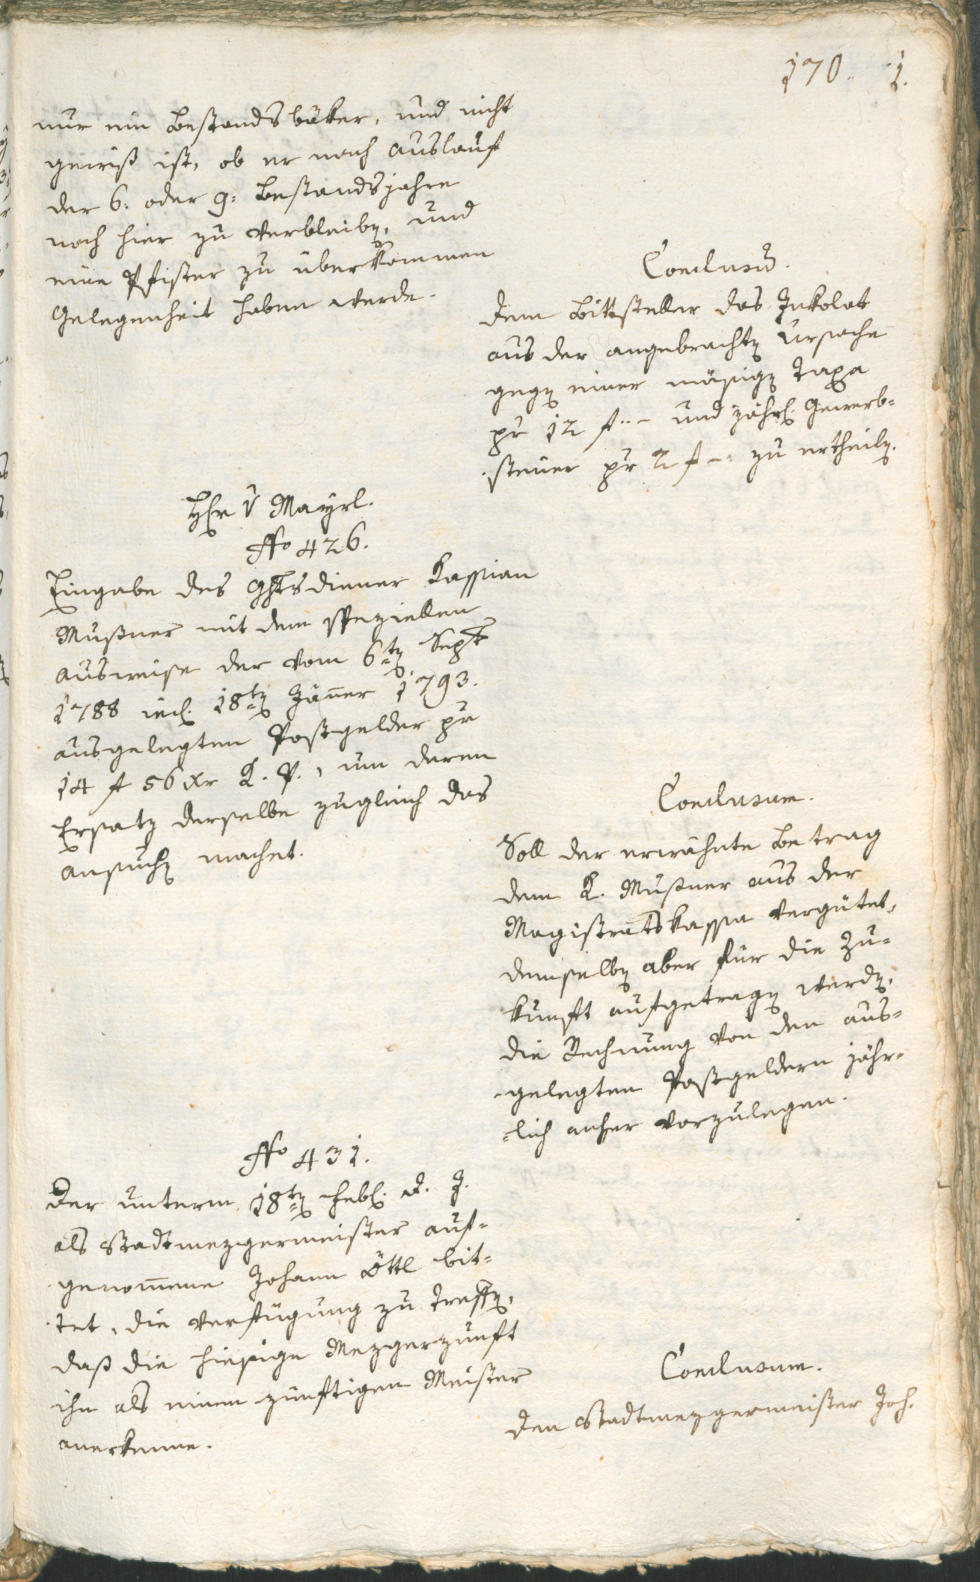 170. 1.
nur ein Bestandsbäker, und nicht
gewiß ist, ob er nach Auslauf
der 6. oder 9. Bestandsjahre
noch hier zu verbleibẽ, und
eine Pfister zu überkommen
Gelegenheit haben werde.
Conclusũ.
Dem Bittsteller das Inkolat
aus der angebrachtẽ Ursache
gegẽ einer mäsigẽ Taxa
pr 12 f — und jährl. Gewerb=
steuer pr 2 f — zu ertheilẽ.
Hr v Mayrl.
No 426.
Eingabe des Ghtsdiener Kassian
Mußner mit dem speziellen
Ausweise der vom 6tẽ Sept
1788 incl. 18tẽ Jäner 1793.
ausgelegten Postgelder pr
14 f 56 xr L. P., um deren
Ersatz derselbe zugleich das
Ansuchẽ machet.
Conclusum.
Soll der erwähnte Betrag
dem K. Mußner aus der
Magistratskassa vergütet,
demselbẽ aber für die Zu=
kunft aufgetragẽ werdẽ,
die Rechnung von den aus=
gelegten Postgeldern jähr=
lich anher vorzulegen.
No 431.
Der unterm 18tẽ Febl. d. J.
als Stadtmezgermeister auf=
genom̄ene Johann Öttl bit=
tet, die Verfügung zu treffẽ,
daß die hiesige Mezgerzunft
ihn als einen zünftigen Meister
anerkenne.
Conclusum.
Den Stadtmezgermeister Joh.